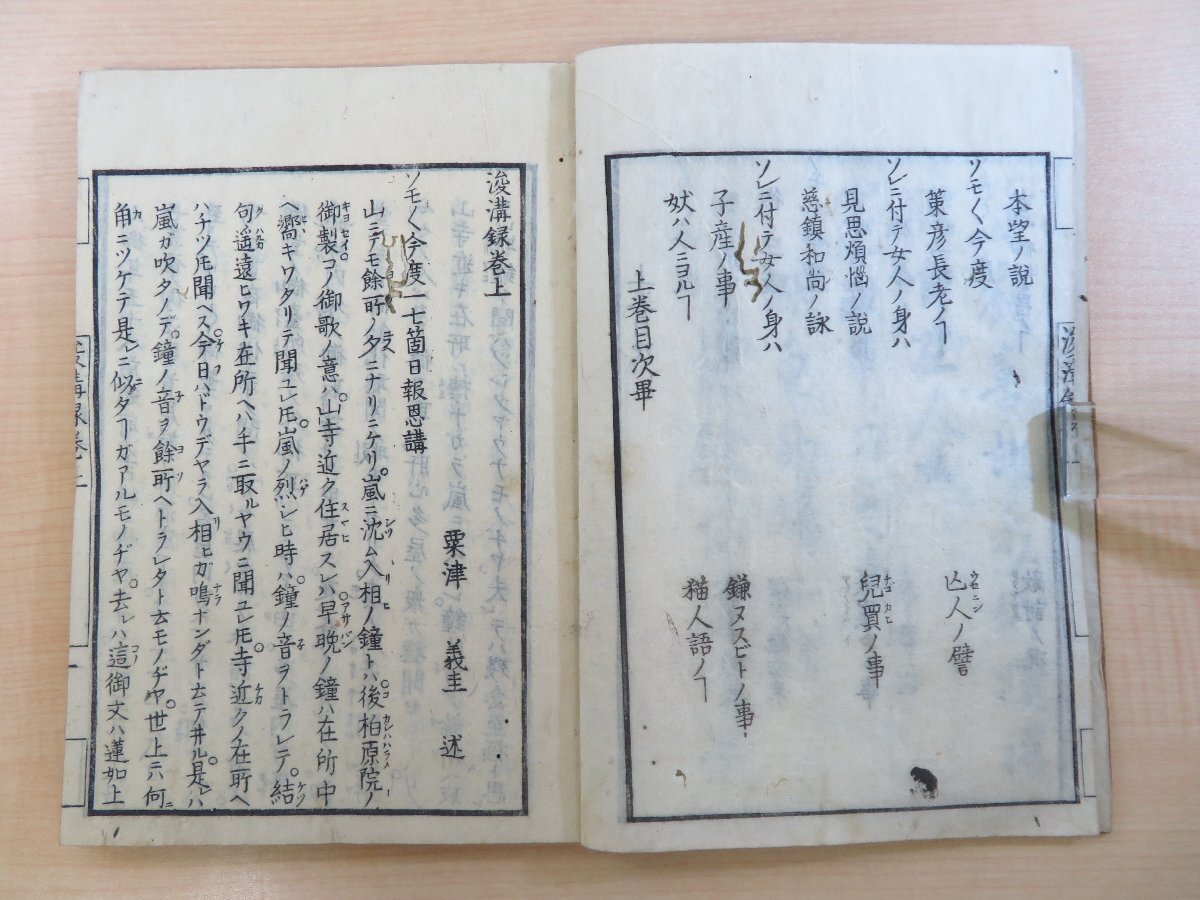 本望ノ説
ソモ〱今度
策彦長老ノヿ
亾人ノ譬
ソレニ付テ女人ノ身ハ
見思煩惱ノ説
兒買ノ事
慈鎮和尚ノ詠
ソレニ付テ女人ノ身ハ
子産ノ事
鎌ヌスビトノ事
妖ハ人ニヨルヿ
猫人語ノヿ
上巻目次畢
浚溝録巻上
粟津 義圭 述
ソモ〱今度一七箇日報恩講
山ニテモ餘所ノ夕ニナリニケリ。嵐ニ沈ム入相ノ鐘トハ後柏原院ノ
御製。コノ御歌ノ意ハ。山寺近ク住居スレハ。早晩ノ鐘ハ在所中
ヘ嚮キワタリテ聞ユレ𪜈。嵐ノ烈シヒ時ハ。鐘ノ音ヲトラレテ。結
句遥遠ヒワキ在所ヘハ手ニ取ルヤウニ聞ユレ𪜈。寺近クノ在所ヘ
ハチツ𪜈聞ヘス。今日ハドウデヤラ入相ヒガ鳴ナンダト云テ井ル。是レハ
嵐ガ吹タノデ。鐘ノ音ヲ餘所ヘトラレタト云モノヂヤ。世上ニハ何
角ニツケテ是レニ似タヿガアルモノヂヤ。去レハ這御文ハ蓮如上